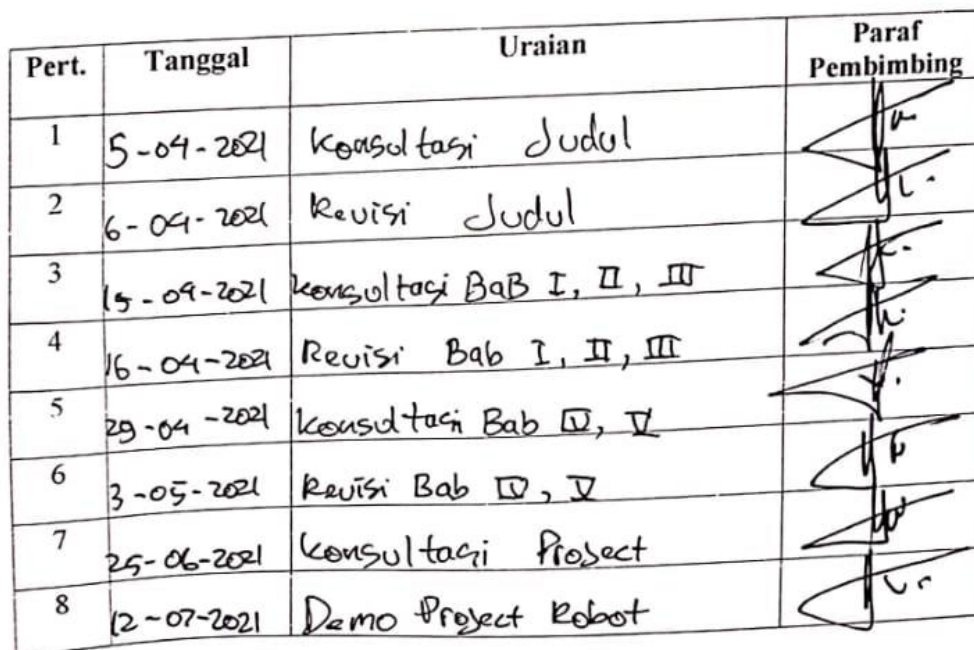 Pert. Tanggal Uraian Paraf Pembimbing
1 5-04-2021 Konsultasi Judul
2 6-04-2021 Revisi Judul
3 15-04-2021 Konsultasi BaB I, II, III
4 16-04-2021 Revisi Bab I, II, III
5 29-04-2021 Konsultasi Bab IV, V
6 3-05-2021 Revisi Bab IV, V
7 25-06-2021 Konsultasi Project
8 12-07-2021 Demo Project Robot